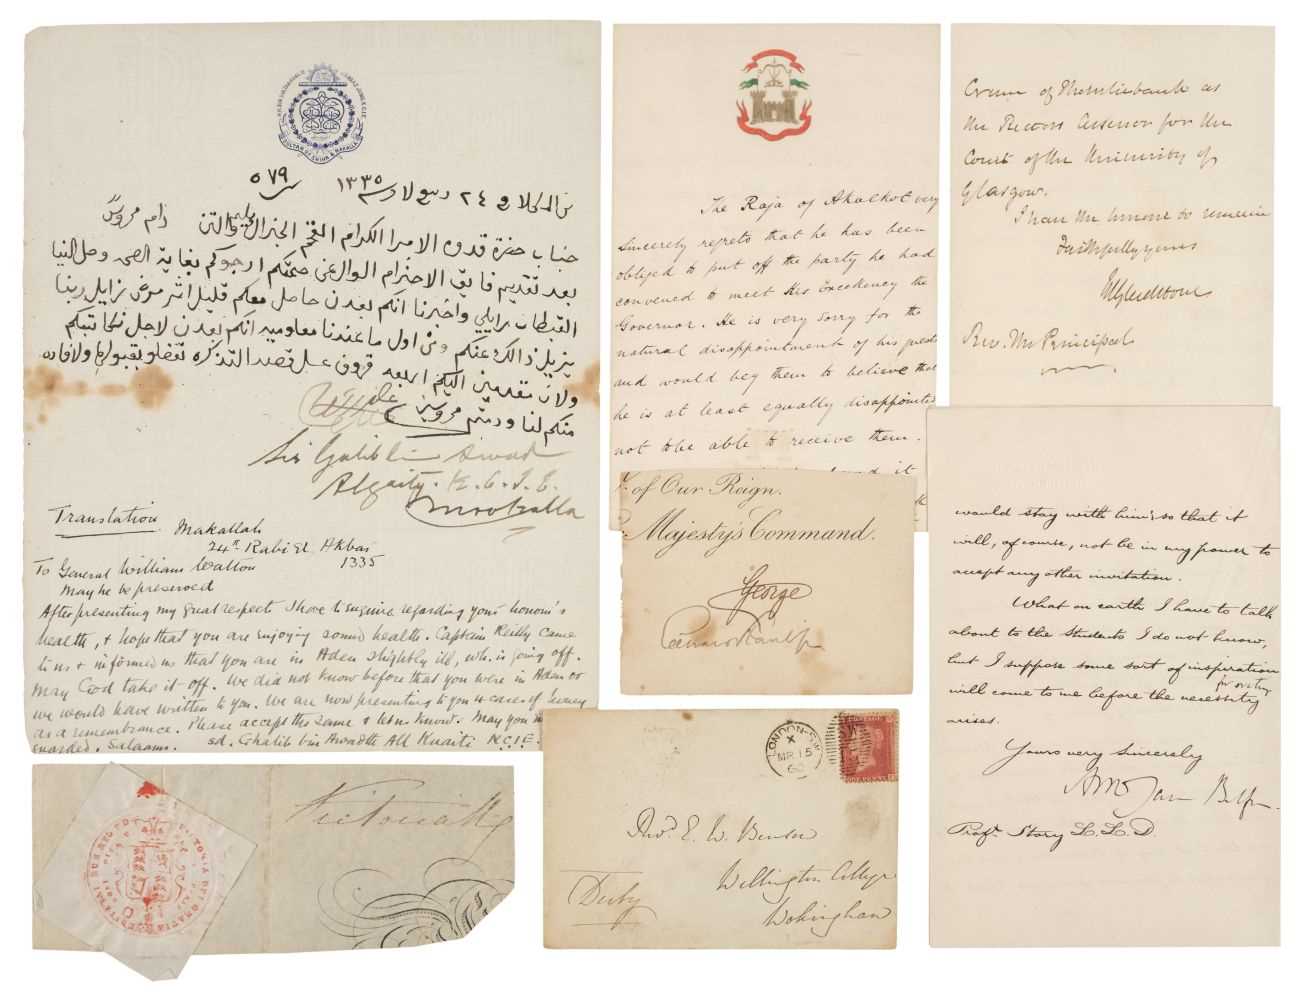 SULTAN OF SHIHR & MAKALLA
٥٧٩
٢٤ ١٣٣٥
دام محروس
جناب حضرة قدوة الامرا الكرام الفخم الجنرال وليم والتن
بعد تقديم فايق الاحترام عن صحتكم ارجوكم بغاية الصحه وصل الينا
القبطان رايلي واخبرنا انكم بعدن حاصل معكم قليل اثر مرض نرجو ربنا
يزيل ذالك عنكم ومن اول ما عندنا معلوميه انكم بعدن لاجل نكاتبكم
ولان مقدمين اليكم اربعه قروف عسل قصد التذكره تفضلو بقبولها والافاده
منكم لنا ودمتم محروسين
Sir Galib bin Awad
Algaity. K.C.I.E.
Mookalla
Translation
Makallah
24th Rabi El Akbar
1335
To General William Walton
May he be preserved
After presenting my great respect I have to enquire regarding your honour's
health, & hope that you are enjoying sound health. Captain Reilly came
to us & informed us that you are in Aden slightly ill, wh. is going off.
May God take it off. We did not know before that you were in Aden or
we would have written to you. We are now presenting to you 4 cases of honey
as a remembrance. Please accept the same & let us know. May you be
guarded. Salaams. sd. Ghalib bin Awadth All Kuaiti K.C.I.E.
The Raja of Akalkot very
sincerely regrets that he has been
obliged to put off the party he had
convened to meet His Excellency the
Governor. He is very sorry for the
natural disappointment of his guests
and would beg them to believe that
he is at least equally disappointed
not to be able to receive them.
of Our Reign.
Majesty's Command.
George
Crum of Thornliebank as
the Rectors Assessor for the
Court of the University of
Glasgow.
I have the honour to remain
Faithfully yours
WGladstone
Rev. the Principal
would stay with him; so that it
will, of course, not be in my power to
accept any other invitation.
What on earth I have to talk
about to the students I do not know,
but I suppose some sort of inspiration
will come to me before the necessity for doing
arises.
Yours very sincerely
Arthur James Balfour
Profr. Story L.L.D.
Victoria
VICTORIA DEI GRATIA
LONDON-S.W
X
MR 15
POSTAGE
ONE PENNY
Revd. E. W. Benson
Wellington College
Wokingham
Derby